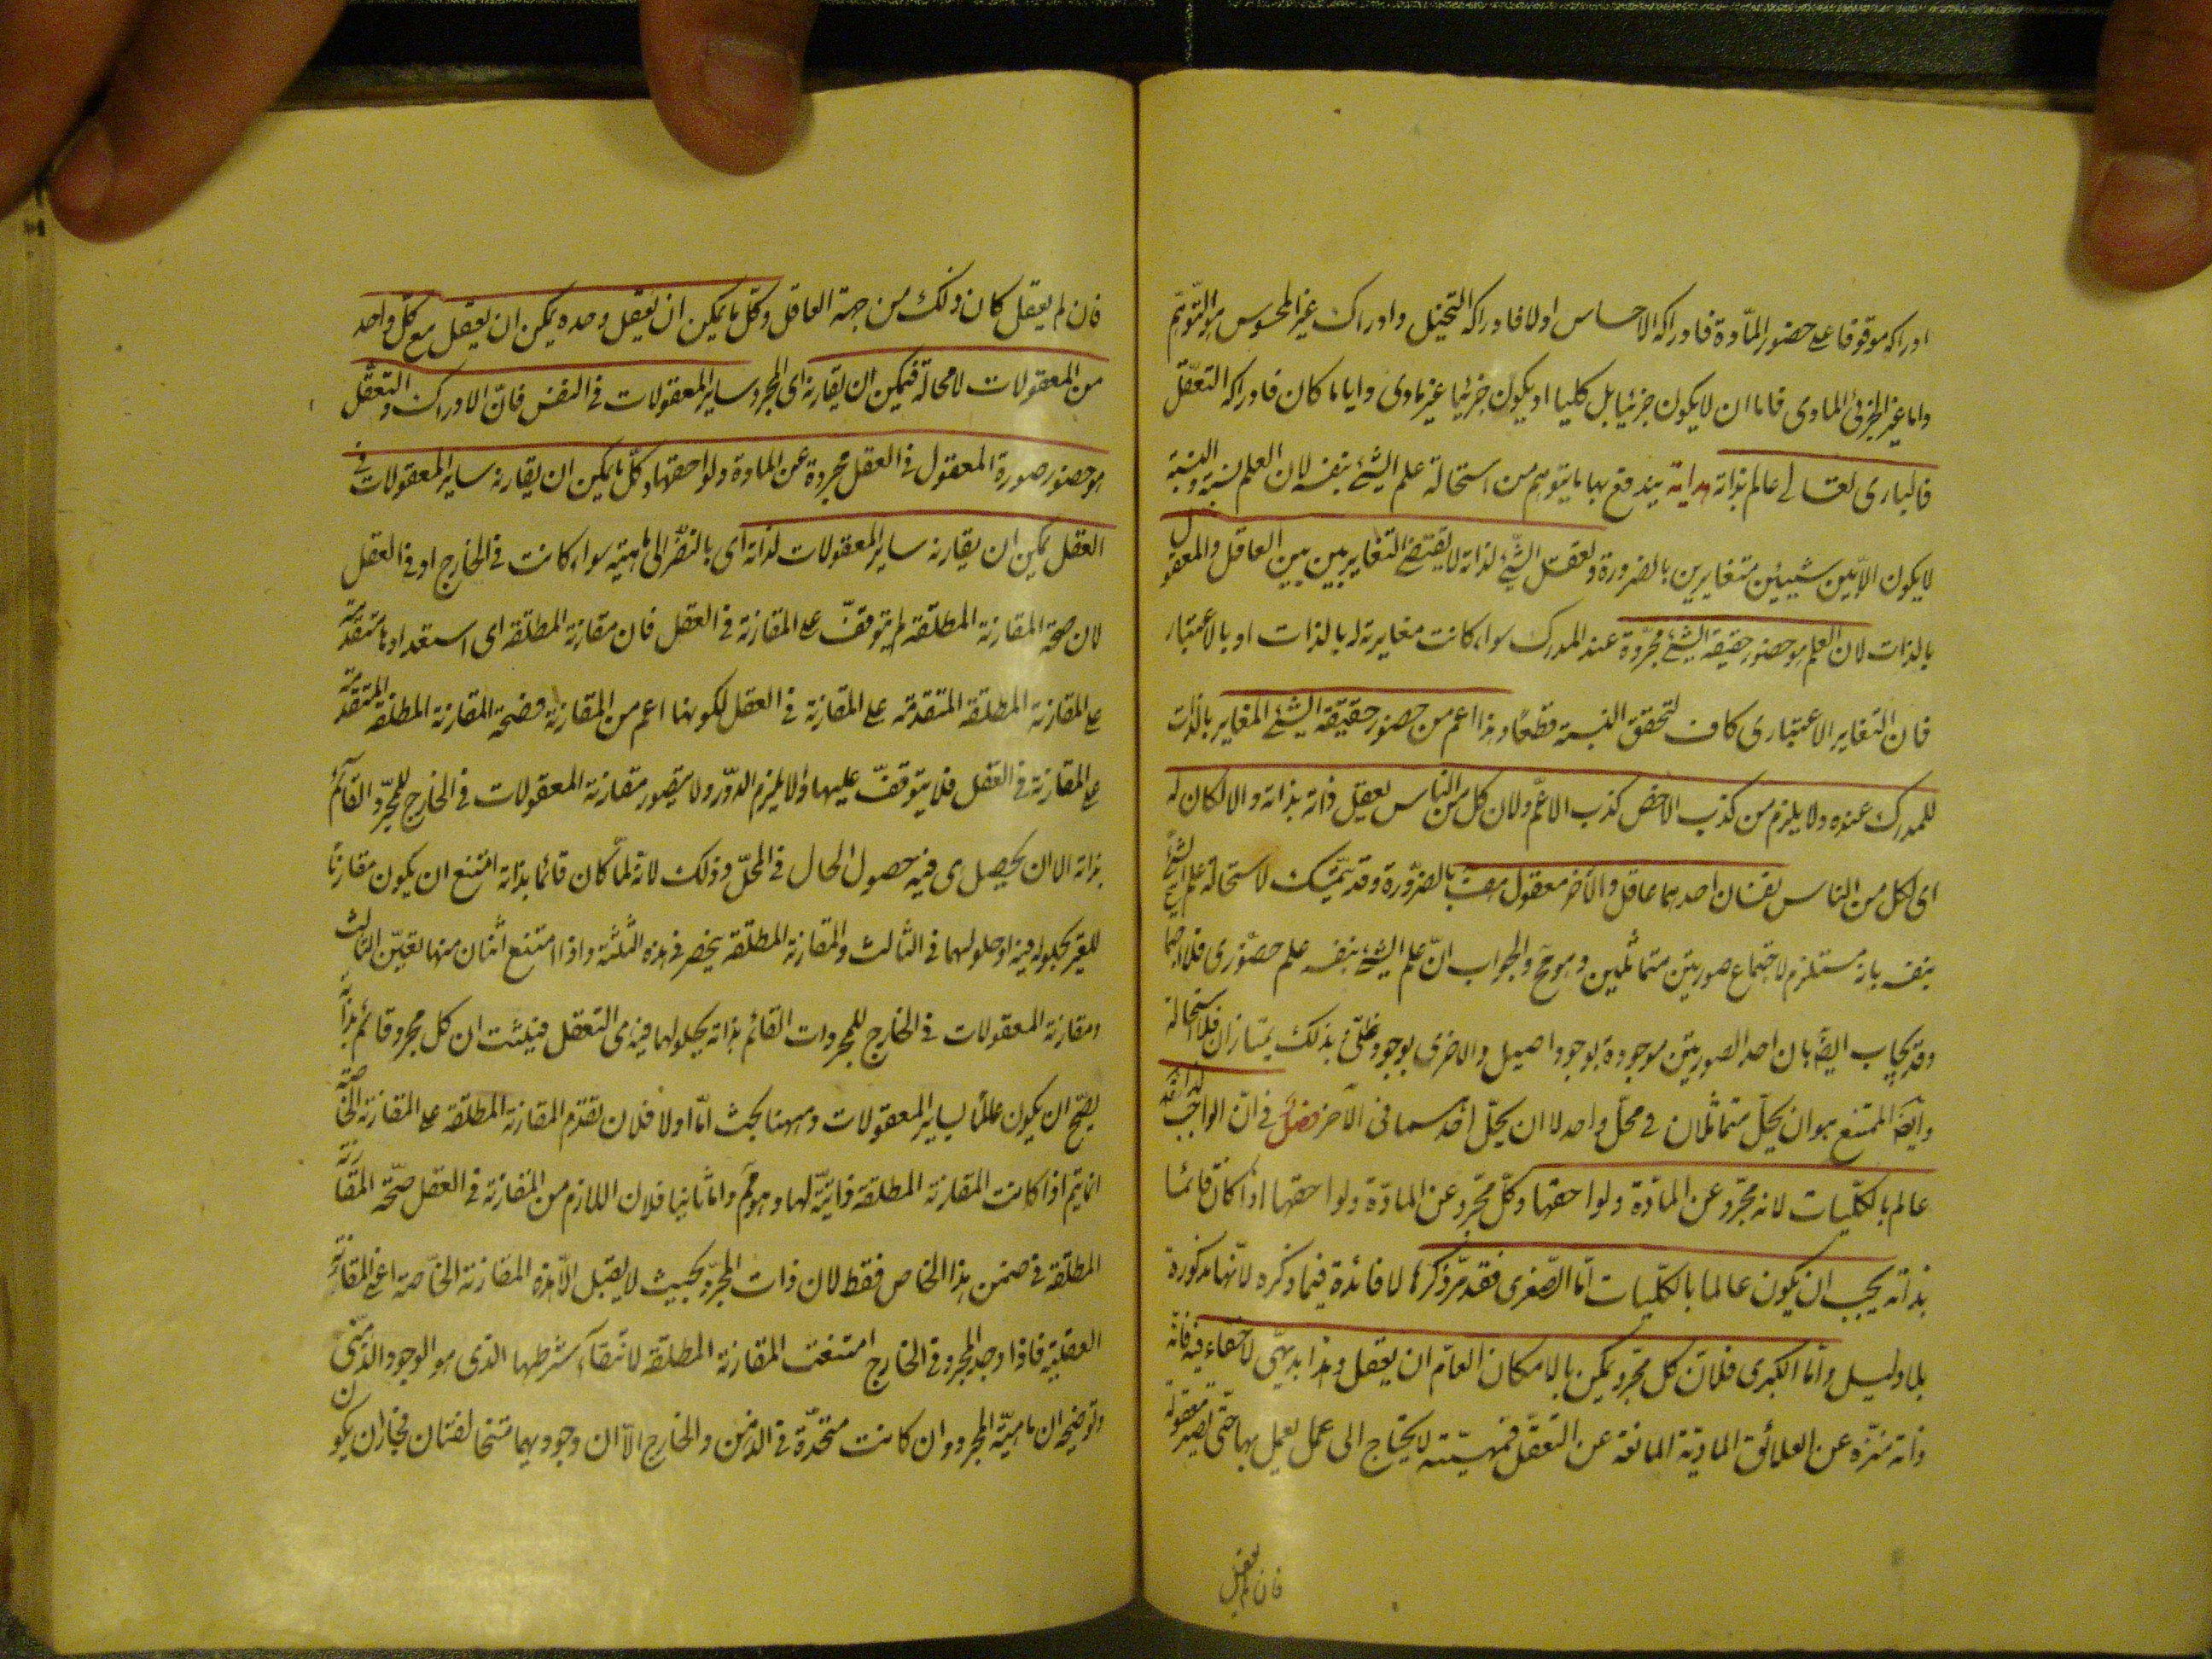 ادراكه موقوفا على حضور المادة فادراكه الاحساس اولا فادراكه التخيل وادراك غير المحسوس هو التوهم
واما غير الجزئى المادى فاما ان لا يكون جزئيا بل كليا او يكون جزئيا غير مادى واياما كان فادراكه التعقل
فالبارى تعالى عالم بذاته هداية يندفع بها ما يتوهم من استحالة علم الشئ بنفسه لان العلم نسبة والنسبة
لا يكون الا بين شيئين متغايرين بالضرورة وتعقل الشئ لذاته لا يقتضى التغاير بين بين العاقل والمعقول
بالذات لان العلم هو حضور حقيقة الشئ مجردة عند المدرك سواء كانت مغايرة له بالذات او بالاعتبار
فان التغاير الاعتبارى كاف لتحقق النسبة قطعا وهذا اعم من حضور حقيقة الشئ المغاير بالذات
للمدرك عنده ولا يلزم من كذب الاخص كذب الاعم ولان كل من الناس يعقل ذاته بذاته والا لكان له
اى لكل من الناس نفسان احدهما عاقل والاخر معقول هف بالضرورة وقد يتمسك لاستحالة علم الشئ
بنفسه بانه مستلزم لاجتماع صورتين متماثلين وهو مح والجواب ان علم الشئ بنفسه علم حضورى فلا اجتماع
وقد يجاب ايضا بان احد الصورتين موجودة بوجود اصيل والاخرى بوجود ظلى بذلك يمتازان فلا استحالة
وايضا الممتنع هو ان يحل متماثلان فى محل واحد لا ان يحل احدهما فى الآخر فصل فى ان الواجب لذاته
عالم بالكليات لانه مجرد عن المادة ولواحقها وكل مجرد عن المادة ولواحقها اذا كان قائما
بذاته يجب ان يكون عالما بالكليات اما الصغرى فقد مر ذكرها لا فائدة فيما ذكره لانها مذكورة
بلا دليل واما الكبرى فلان كل مجرد يمكن بالامكان العام ان يعقل وهذا بديهى لا خفاء فيه فانه
ذاته منزه عن العلائق المادية المانعة عن التعقل فمهيته لا يحتاج الى عمل يعمل بها حتى تصير معقولة
فان لم يعقل
فان لم يعقل كان ذلك من جهة العاقل وكل ما يمكن ان يعقل وحده يمكن ان يعقل مع كل واحد
من المعقولات لا محالة فيمكن ان يقارنه اى المجرد ساير المعقولات فى النفس فان الادراك والتعقل
هو حضور صورة المعقول فى العقل مجردة عن المادة ولواحقها وكل ما يمكن ان يقارنه ساير المعقولات فى
العقل يمكن ان يقارنه ساير المعقولات لذاته اى بالنظر الى ماهيته سواء كانت فى الخارج او فى العقل
لان صحة المقارنة المطلقة لم يتوقف على المقارنة فى العقل فان مقارنة المطلقة اى استعدادها متقدمة
على المقارنة المطلقة المتقدمة على المقارنة فى العقل لكونها اعم من المقارنة فصحة المقارنة المطلقة المتقدمة
على المقارنة فى العقل فلا يتوقف عليها والا يلزم الدور ولا يتصور مقارنة المعقولات فى الخارج للمجرد القائم
بذاته الا ان يحصل فيه حصول الحال فى المحل وذلك لانه لما كان قائما بذاته امتنع ان يكون مقارنا
للغير بحلوله فيه او حلولهما فى الثالث والمقارنة المطلقة ينحصر فى هذه الثلثة واذا امتنع اثنان منها تعين الثالث
ومقارنة المعقولات فى الخارج للمجردات القائم بذاته بحلولها فيه هى التعقل فيثبت ان كل مجرد قائم بذاته
يصح ان يكون عالما بساير المعقولات وههنا بحث اما اولا فلان تقدم المقارنة المطلقة على المقارنة الخاصة
انما يتم اذا كانت المقارنة المطلقة ذاتية لها وهو مم واما ثانيا فلان اللازم من المقارنة فى العقل صحة المقارنة
المطلقة فى ضمن هذا الخاص فقط لان ذات المجرد بحيث لا يقبل الا هذه المقارنة الخاصة اعنى المقارنة
العقلية فاذا وجد المجرد فى الخارج امتنعت المقارنة المطلقة لانتفاء شرطها الذى هو الوجود الذهنى
وتوضيحه ان ماهية المجرد وان كانت متحدة فى الذهن والخارج الا ان وجوديهما متخالفتان فجاز ان يكون